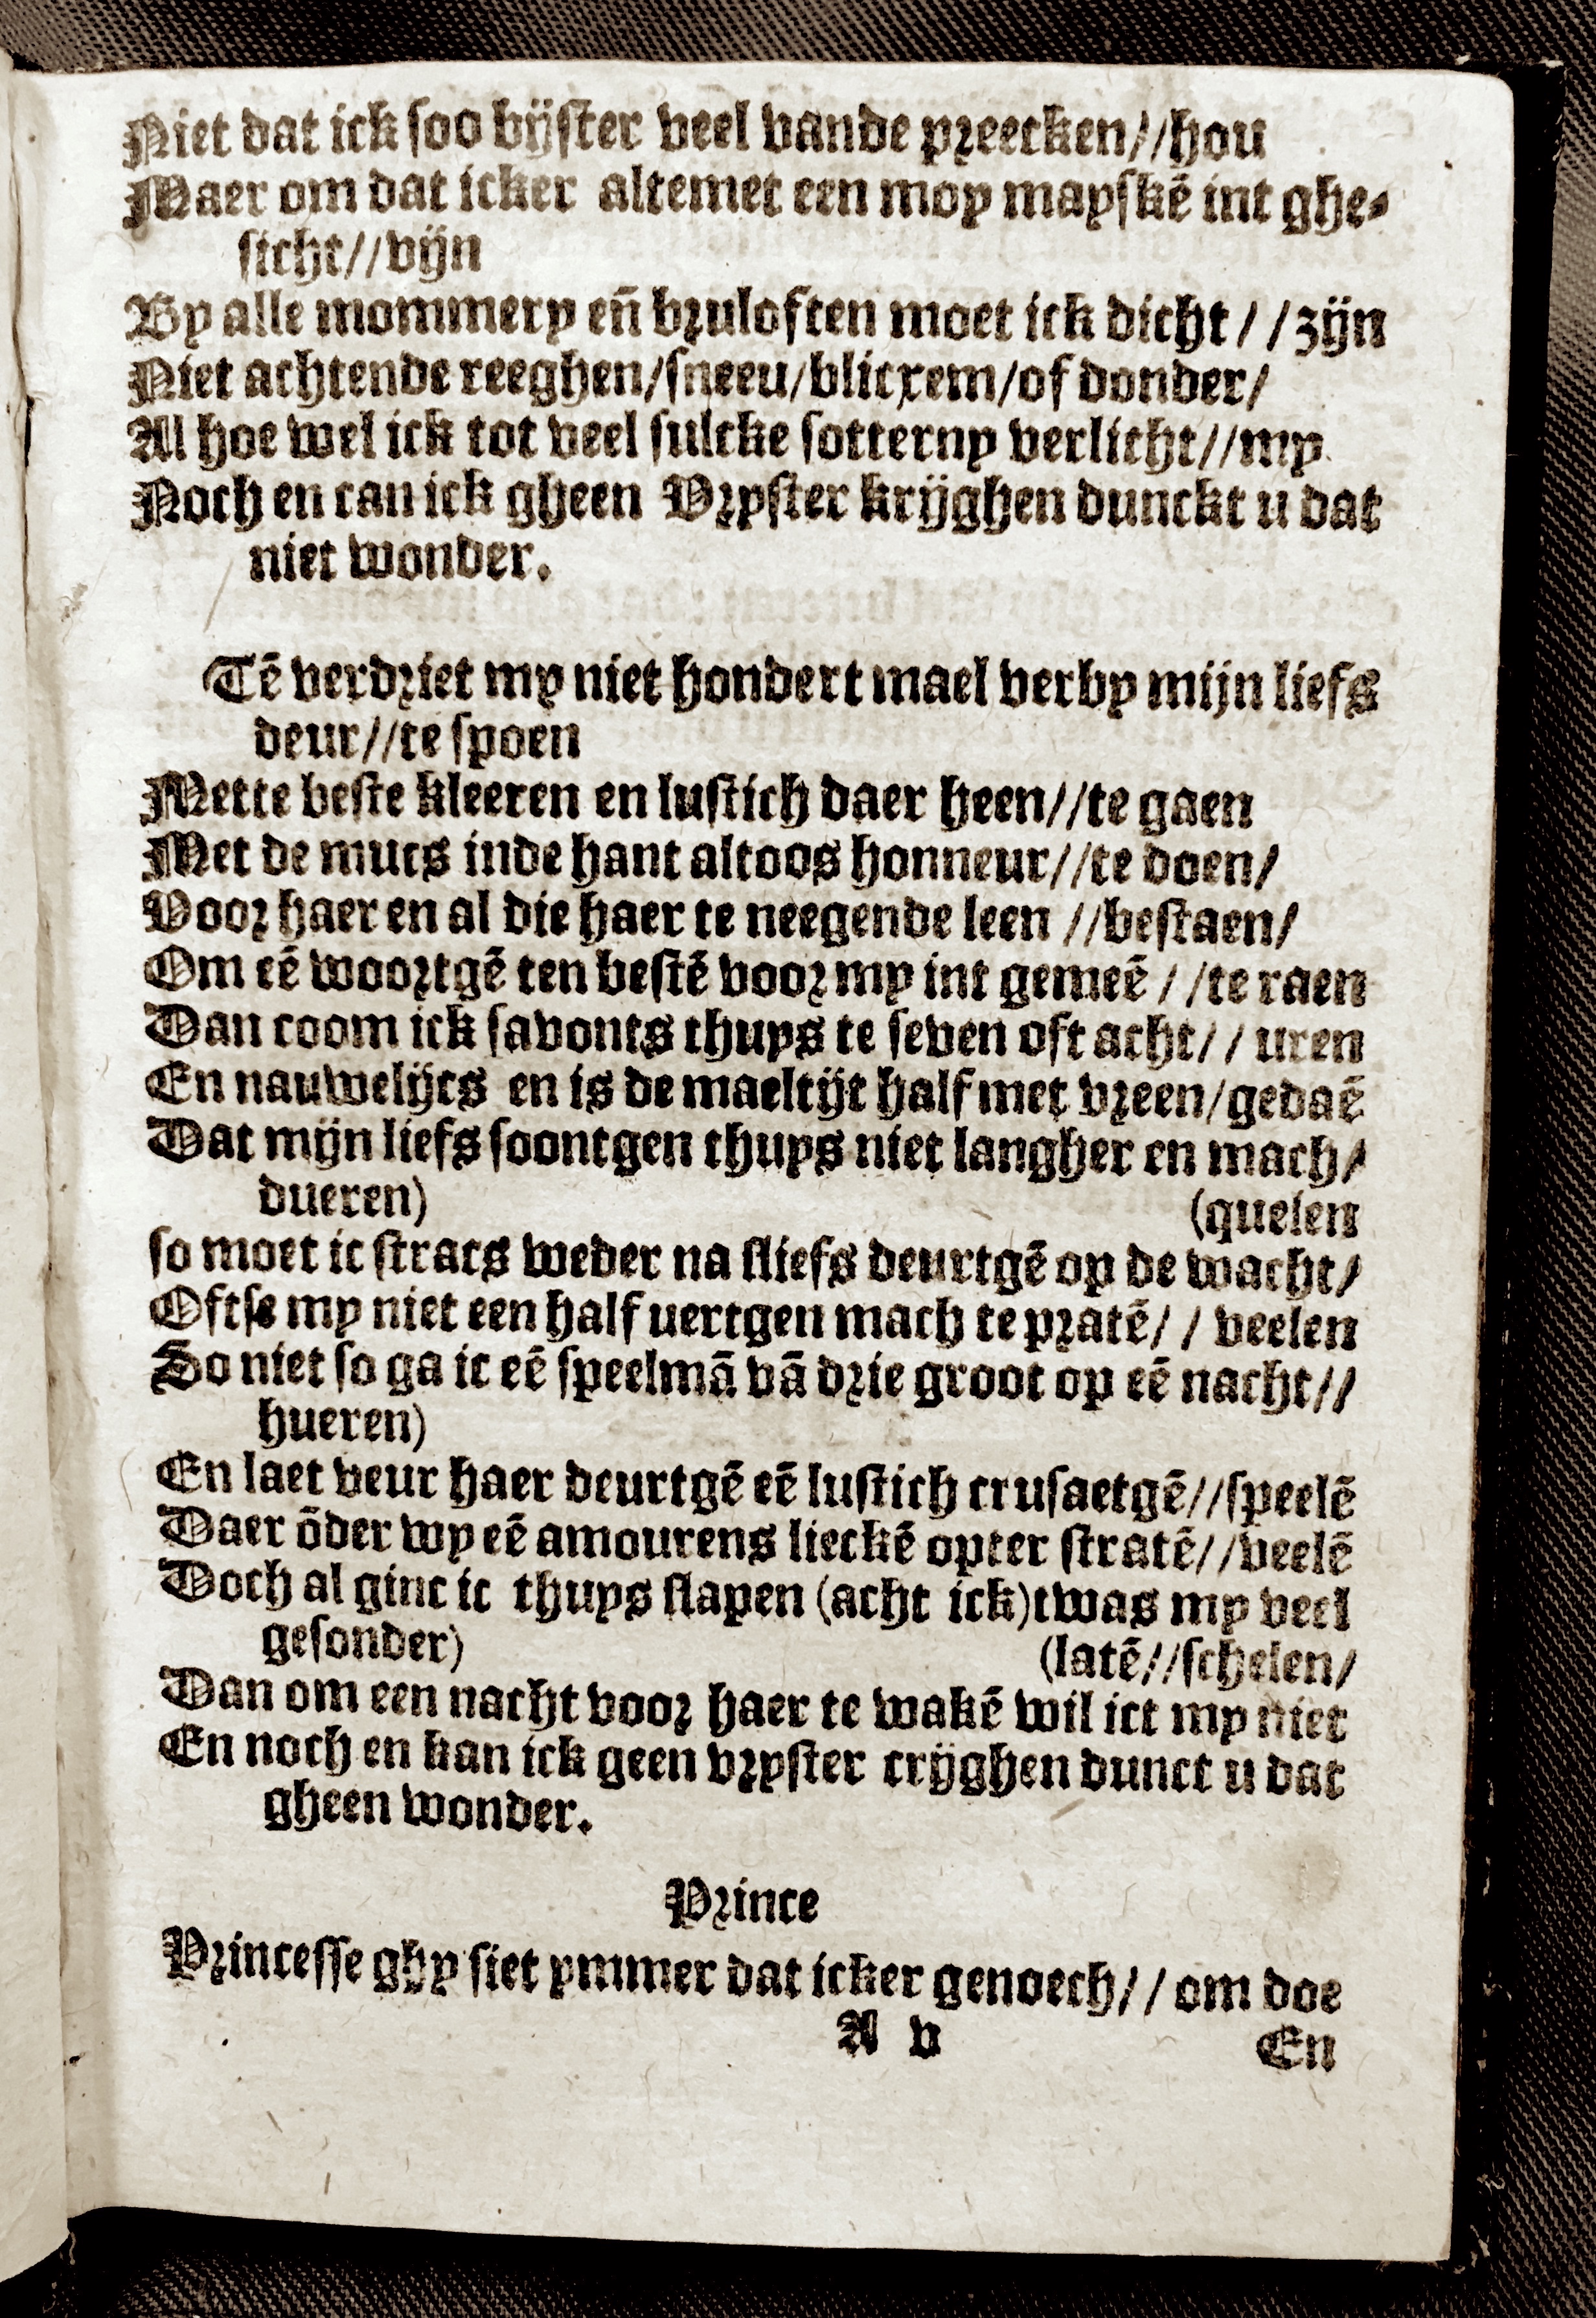 Niet dat ick soo bijster veel vande preecken//hou
Maer om dat icker altemet een moy mayskē int ghe-
sicht//vijn
By alle mommery eñ bruloften moet ick dicht//zijn
Niet achtende reeghen/sneeu/blicxem/of donder/
Al hoe wel ick tot veel sulcke sotterny verlicht//my
Noch en can ick gheen Vryster krijghen dunckt u dat
niet wonder.
Tē verdriet my niet hondert mael verby mijn liefs
deur//te spoen
Mette beste kleeren en lustich daer heen//te gaen
Met de muts inde hant altoos honneur//te doen/
Voor haer en al die haer te neegende leen //bestaen/
Om eē woortgē ten bestē voor my int gemeē //te raen
Dan coom ick savonts thuys te seven oft acht// uren
En nauwelijcs en is de maeltijt half met vreen/gedaē
Dat mijn liefs soontgen thuys niet langher en mach/
dueren) (quelen
so moet ic stracs weder na sliefs deurtgē op de wacht/
Oftse my niet een half uertgen mach te pratē// veelen
So niet so ga ic eē speelmā vā drie groot op eē nacht//
hueren)
En laet veur haer deurtgē eē lustich crusaetgē//speelē
Daer ōder wy eē amourens lieckē opter stratē//veelē
Doch al ginc ic thuys slapen (acht ick)twas my veel
gesonder) (latē//schelen/
Dan om een nacht voor haer te wakē wil ict my niet
En noch en kan ick geen vryster crijghen dunct u dat
gheen wonder.
Prince
Princesse ghy siet ymmer dat icker genoech// om doe
A v En